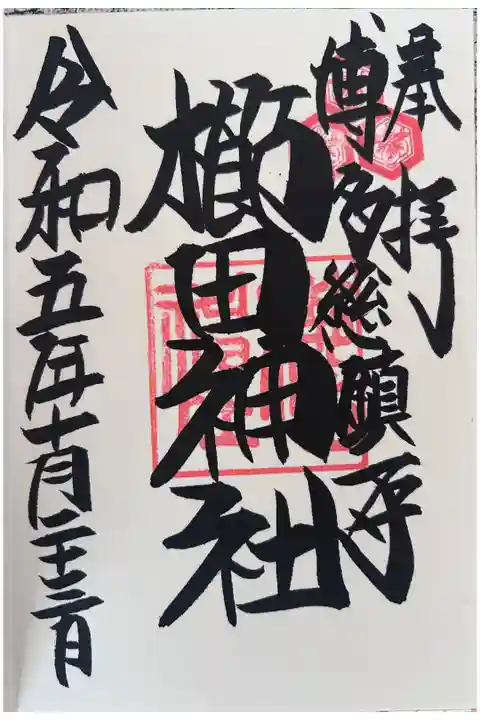 奉拝
博多総鎮守
櫛田神社
令和五年十月二十三日